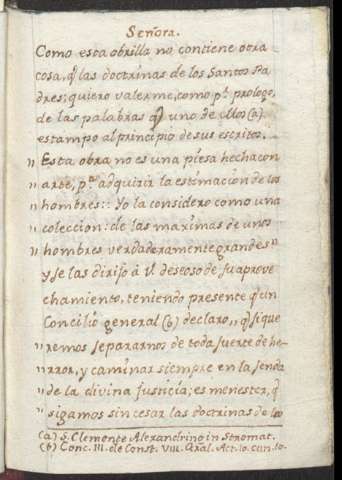 Señora.
Como esta obrilla no contiene otra
cosa, q.e las doctrinas de los Santos Pa
dres; quiero valerme, como p.r prologo,
de las palabras q.e uno de ellos (a)
estampo al principio de sus escritos.
„ Esta obra no es una piesa hecha con
„ arte, p.a adquirir la estimacion de los
„ hombres:: Yo la considero como una
„ coleccion: de las maximas de unos
„ hombres verdaderamente grandes"
y se las dirijo á V. deseoso de su aprove
chamiento, teniendo presente q.e un
Concilio general (b) declaro,, q.e si que
„ remos separarnos de toda suerte de he-
„ rror, y caminar siempre en la senda
„ de la divina justicia; es menester, q.e
„ sigamos sin cesar las doctrinas de los
(a) S. Clemente Alexandrino in Stromat.
(b) Conc. III. de Const. VIII. Gral. Act. 10. can. 10.